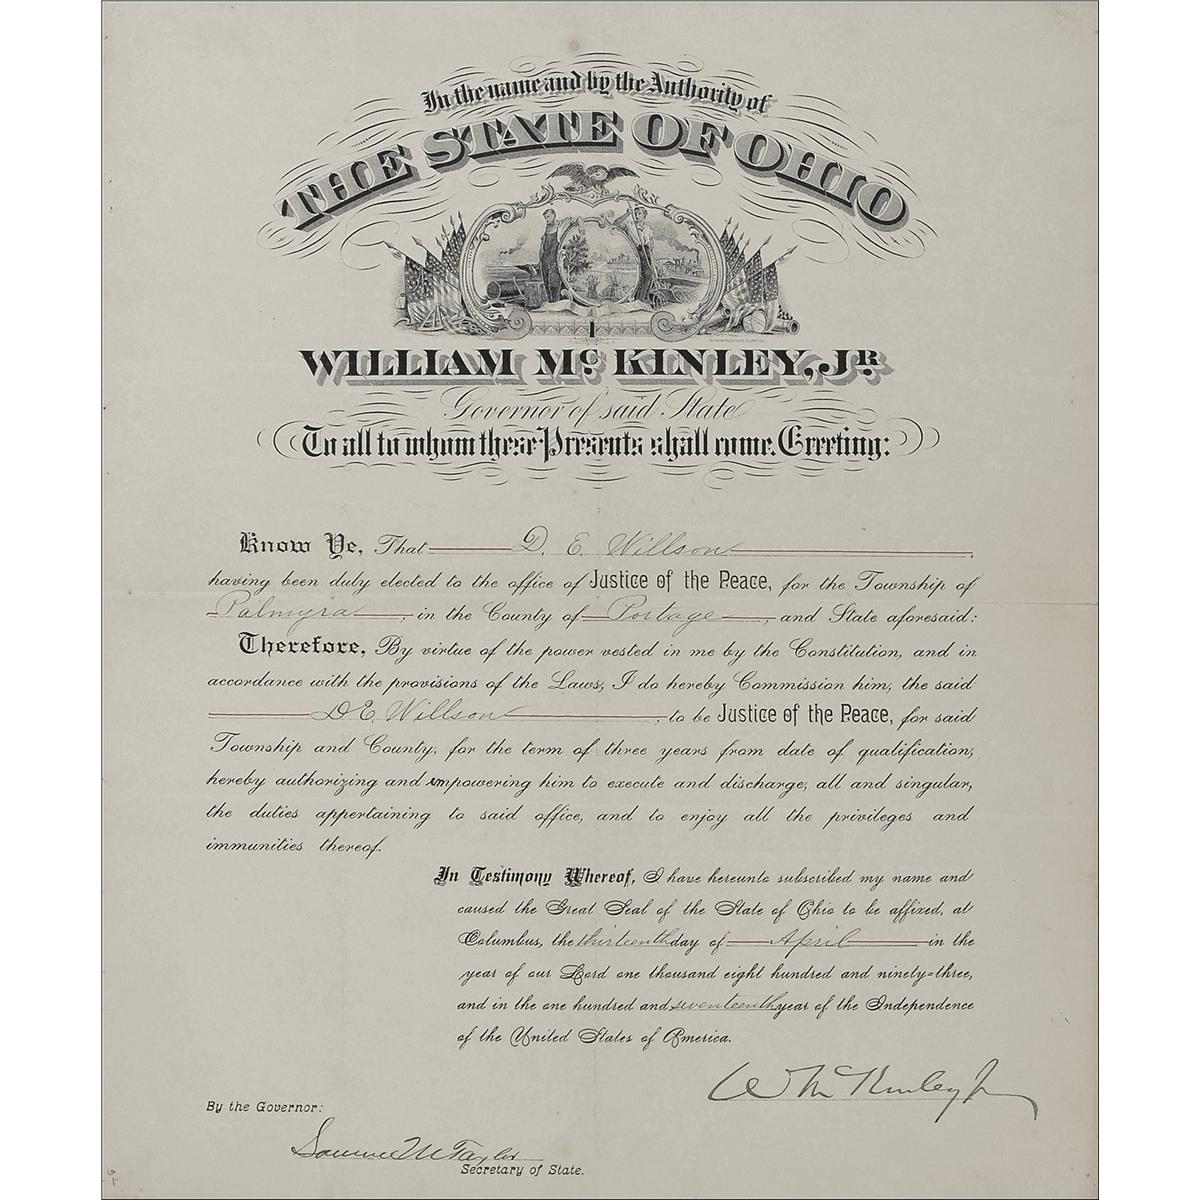 In the name and by the Authority of
THE STATE OF OHIO
WILLIAM McKINLEY, JR.
Governor of said State
To all to whom these Presents shall come, Greeting:
Know Ye, That D. E. Willson,
having been duly elected to the office of Justice of the Peace, for the Township of
Palmyra, in the County of Portage, and State aforesaid:
Therefore, By virtue of the power vested in me by the Constitution, and in
accordance with the provisions of the Laws, I do hereby Commission him, the said
D E. Willson, to be Justice of the Peace, for said
Township and County, for the term of three years from date of qualification,
hereby authorizing and empowering him to execute and discharge, all and singular,
the duties appertaining to said office, and to enjoy all the privileges and
immunities thereof.
In Testimony Whereof, I have hereunto subscribed my name and
caused the Great Seal of the State of Ohio to be affixed, at
Columbus, the thirteenth day of April in the
year of our Lord one thousand eight hundred and ninety-three,
and in the one hundred and seventeenth year of the Independence
of the United States of America.
W McKinley Jr
By the Governor:
Samuel M Taylor
Secretary of State.